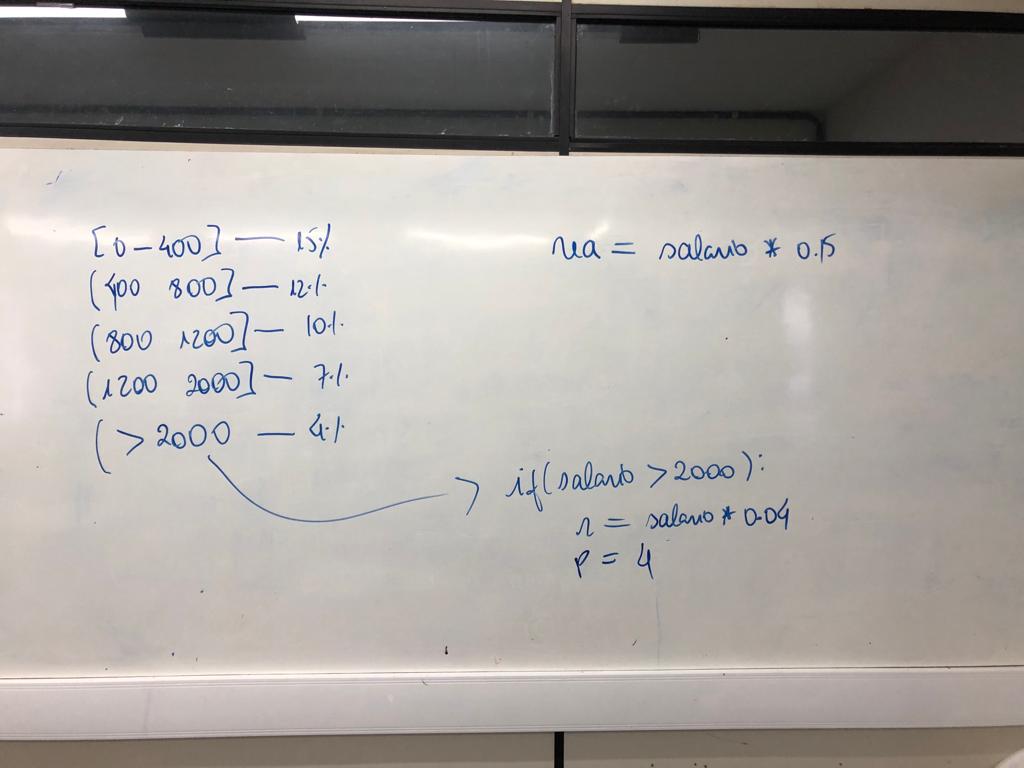 [0 - 400] — 15%
(400 800] — 12%
(800 1200] — 10%
(1200 2000] — 7%
( > 2000 — 4%
rea = salario * 0.15
if(salario > 2000):
r = salario * 0.04
p = 4